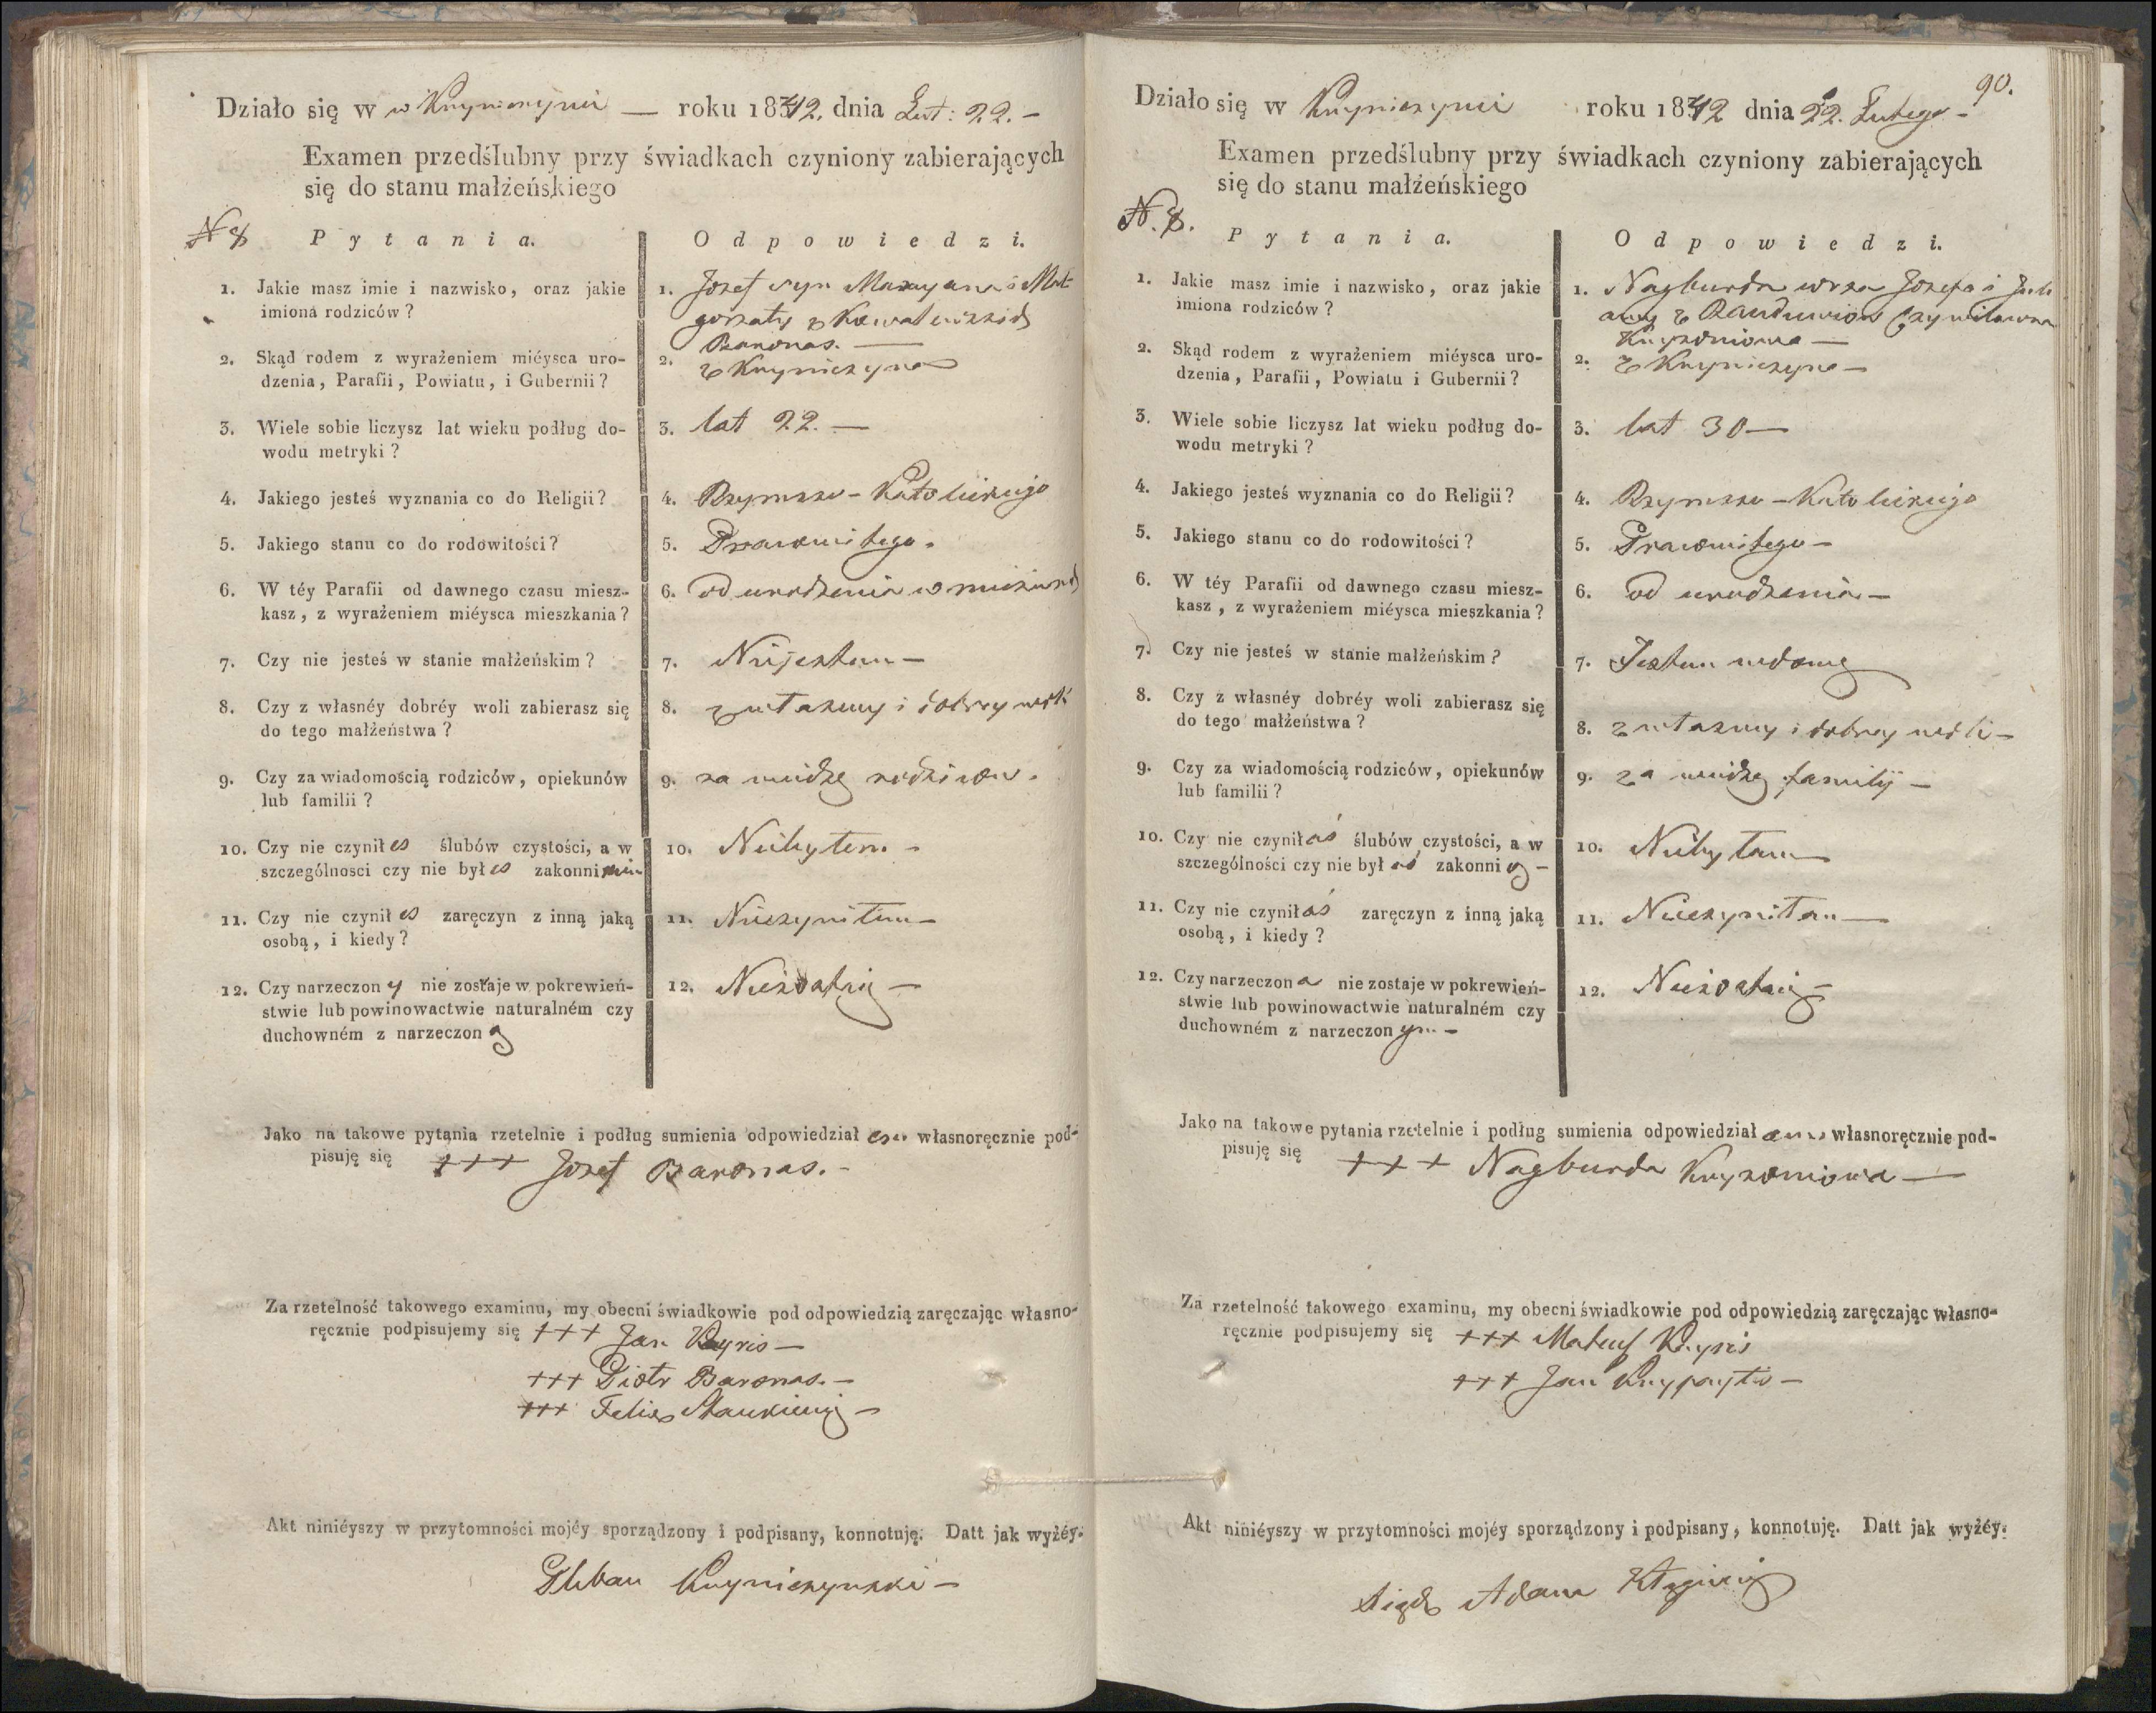 Działo się w w Krynicznynie — roku 1842. dnia Lut: 22. –
Examen przedślubny przy świadkach czyniony zabierających
się do stanu małżeńskiego
N 8
Pytania.
Odpowiedzi.
1. Jakie masz imie i nazwisko, oraz jakie
imiona rodziców?
1. Jozef syn Maryana i Mał
gorzaty z
Baronas. —
2. Skąd rodem z wyrażeniem miéysca uro-
dzenia, Parafii, Powiatu, i Gubernii?
2. z
3. Wiele sobie liczysz lat wieku podług do-
wodu metryki?
3. lat 22. —
4. Jakiego jesteś wyznania co do Religii?
4. Rzymsko - Katolickiego
5. Jakiego stanu co do rodowitości?
5. Prawowitego.
6. W téy Parafii od dawnego czasu miesz-
kasz, z wyrażeniem miéysca mieszkania?
6. od urodzenia w
7. Czy nie jesteś w stanie małżeńskim?
7. Niejestem —
8. Czy z własnéy dobréy woli zabierasz się
do tego małżeństwa?
8. z własney i dobrey woli
9. Czy za wiadomością rodziców, opiekunów
lub familii?
9. za wiedzą rodziców.
10. Czy nie czynił es ślubów czystości, a w
szczególnosci czy nie był es zakonni
10. Niebyłem. –
11. Czy nie czynił es zaręczyn z inną jaką
osobą, i kiedy?
11. Nieczyniłem —
12. Czy narzeczon y nie zostaje w pokrewień-
stwie lub powinowactwie naturalném czy
duchowném z narzeczon ą
12. —
Jako na takowe pytania rzetelnie i podług sumienia odpowiedział em własnoręcznie pod-
pisuję się +++ Jozef Baronas. –
Za rzetelność takowego examinu, my obecni świadkowie pod odpowiedzią zaręczając własno-
ręcznie podpisujemy się +++ Jan —
+++ Piotr Baronas. –
+++ Felix –
Akt niniéyszy w przytomności mojéy sporządzony i podpisany, konnotuję. Datt jak wyżéy.
Pleban –
90.
Działo się w roku 1842 dnia 22. Lutego –
Examen przedślubny przy świadkach czyniony zabierających
się do stanu małżeńskiego
N. 8.
Pytania.
Odpowiedzi.
1. Jakie masz imie i nazwisko, oraz jakie
imiona rodziców?
1. Nagburda Jozefa i Juli
anny z
—
2. Skąd rodem z wyrażeniem miéysca uro-
dzenia, Parafii, Powiatu i Gubernii?
2. z —
3. Wiele sobie liczysz lat wieku podług do-
wodu metryki?
3. lat 30 —
4. Jakiego jesteś wyznania co do Religii?
4. Rzymsko - Katolickiego
5. Jakiego stanu co do rodowitości?
5. Prawowitego –
6. W téy Parafii od dawnego czasu miesz-
kasz, z wyrażeniem miéysca mieszkania?
6. od urodzenia. –
7. Czy nie jesteś w stanie małżeńskim?
7. Jestem wdową
8. Czy z własnéy dobréy woli zabierasz się
do tego małżeństwa?
8. z własney i dobrey woli –
9. Czy za wiadomością rodziców, opiekunów
lub familii?
9. za wiedzą familij –
10. Czy nie czynił aś ślubów czystości, a w
szczególności czy nie był aś zakonni ą –
10. Niebyłam —
11. Czy nie czynił aś zaręczyn z inną jaką
osobą, i kiedy?
11. Nieczyniłam —
12. Czy narzeczon a nie zostaje w pokrewień-
stwie lub powinowactwie naturalném czy
duchowném z narzeczon ym –
12. –
Jako na takowe pytania rzetelnie i podług sumienia odpowiedział am własnoręcznie pod-
pisuję się +++ Nagburda —
Za rzetelność takowego examinu, my obecni świadkowie pod odpowiedzią zaręczając własno-
ręcznie podpisujemy się +++
+++ Jan –
Akt niniéyszy w przytomności mojéy sporządzony i podpisany, konnotuję. Datt jak wyżéy.
Adam